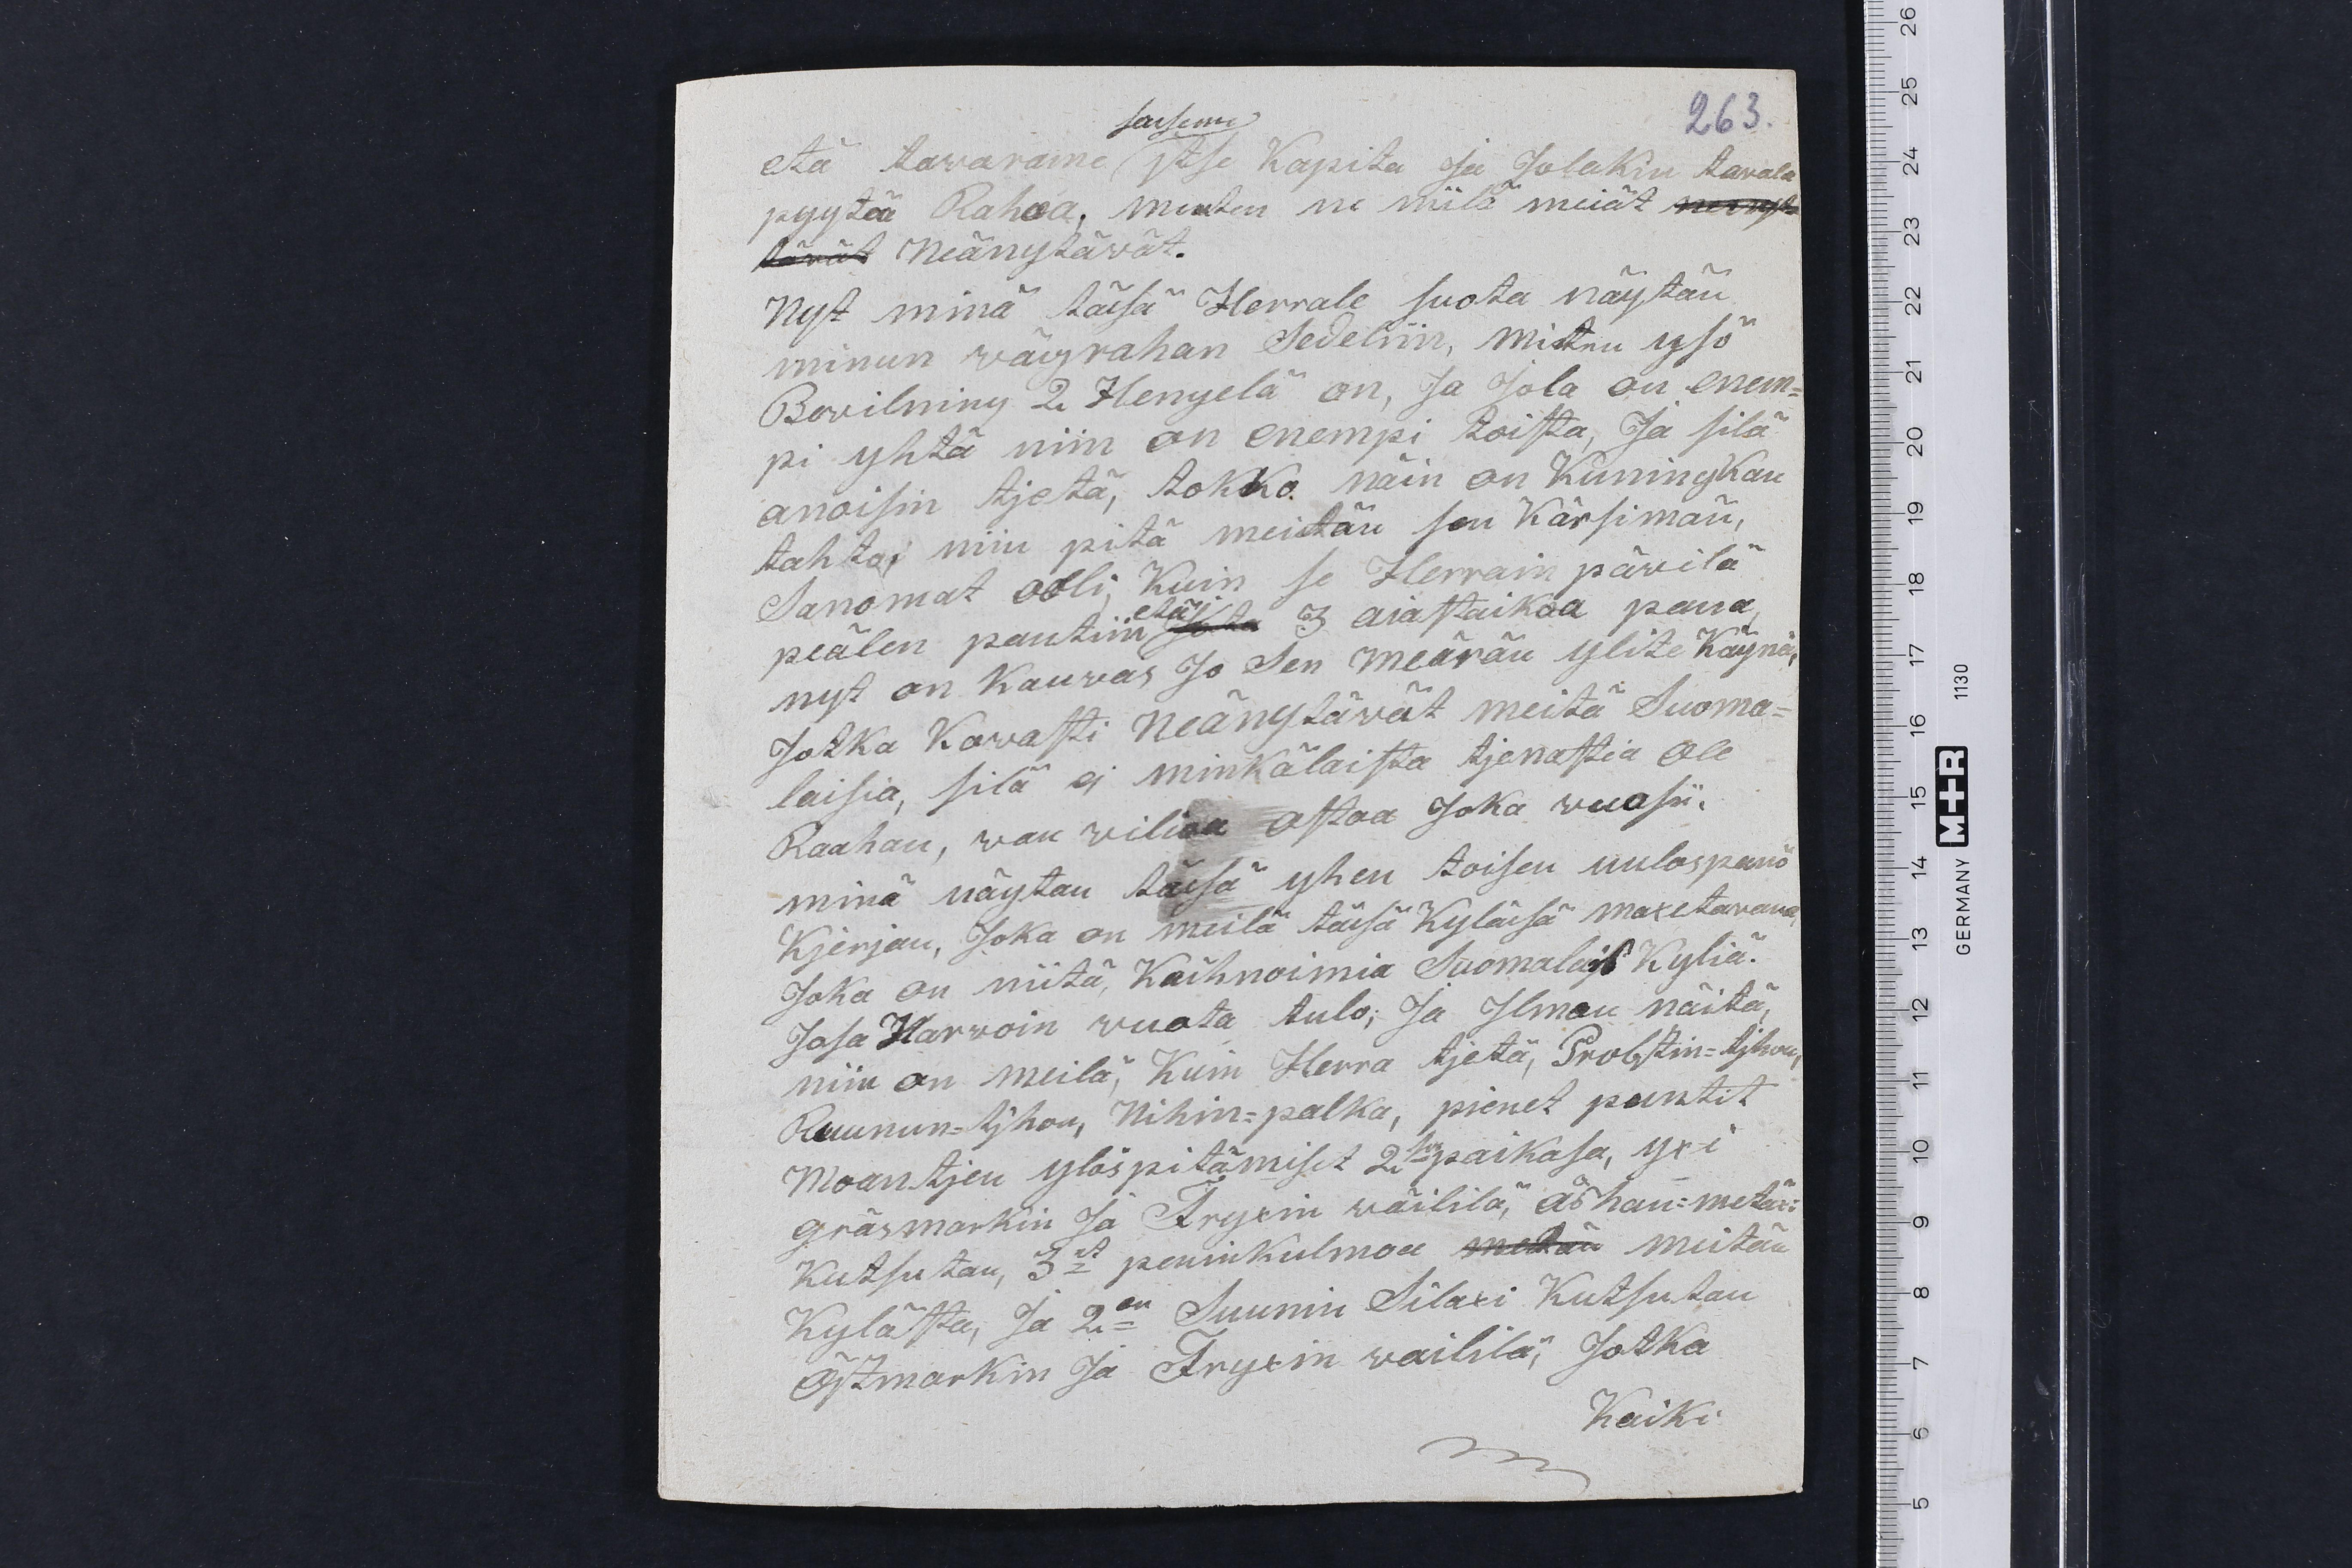 263.
saisime
etä tavarame jtse Kapita Ja Jolakin tavala
pyytää Rahoa, muten ne niilä meiät neänyt-
tävät Neänytävät.
Nyt minä täisä Herrale suota näytän
minun väyrahan Sedeliin, miten ysö
Bevilning 2. Hengelä on, Ja Jola on enem=
pi yhtä niin on enempi toista, Ja silä
anoisin tjetä, tokko näin on Kuningkan
tahto, niin pitä meitän sen Kärsimän,
Sanomat olli, Kuin se Herrain pävilä
peälen pantiin etä 3 aiastaikoa pana,
nyt on Kauvas Jo Sen meärän ylite Käynä,
Jotka Kovasti Neänytävät meitä Suoma=
laisia, silä ej minkälaista tjenastia ole
Raahan, van viliaa ostaa Joka vuosii.
minä näytan täisä yhen toisen uulospanö
Kjerjan, Joka on meilä täisä Kyläisä maxetavana,
Joka on niitä, Kaihnoimia Suomalais Kyliä.
Josa Harvoin vuota tulo; Ja Jlman näitä,
niin on meilä, Kuin Herra tjetä, Probstin=tjhon,
Ruunun=tjhon, Nihin=palka, pienet puntit
Moantjen ylöspitämiset 2. paikasa, yxi
gräsmarkin Ja Fryxin väililä, åshan=metän=
Kutsutan, 3 peninkulmoa metän meitän
Kylästa, Ja 2en Suunin Silaxi Kutsutan
Östmarkin Ja Fryxin vaililä, Jotka
Kaiki